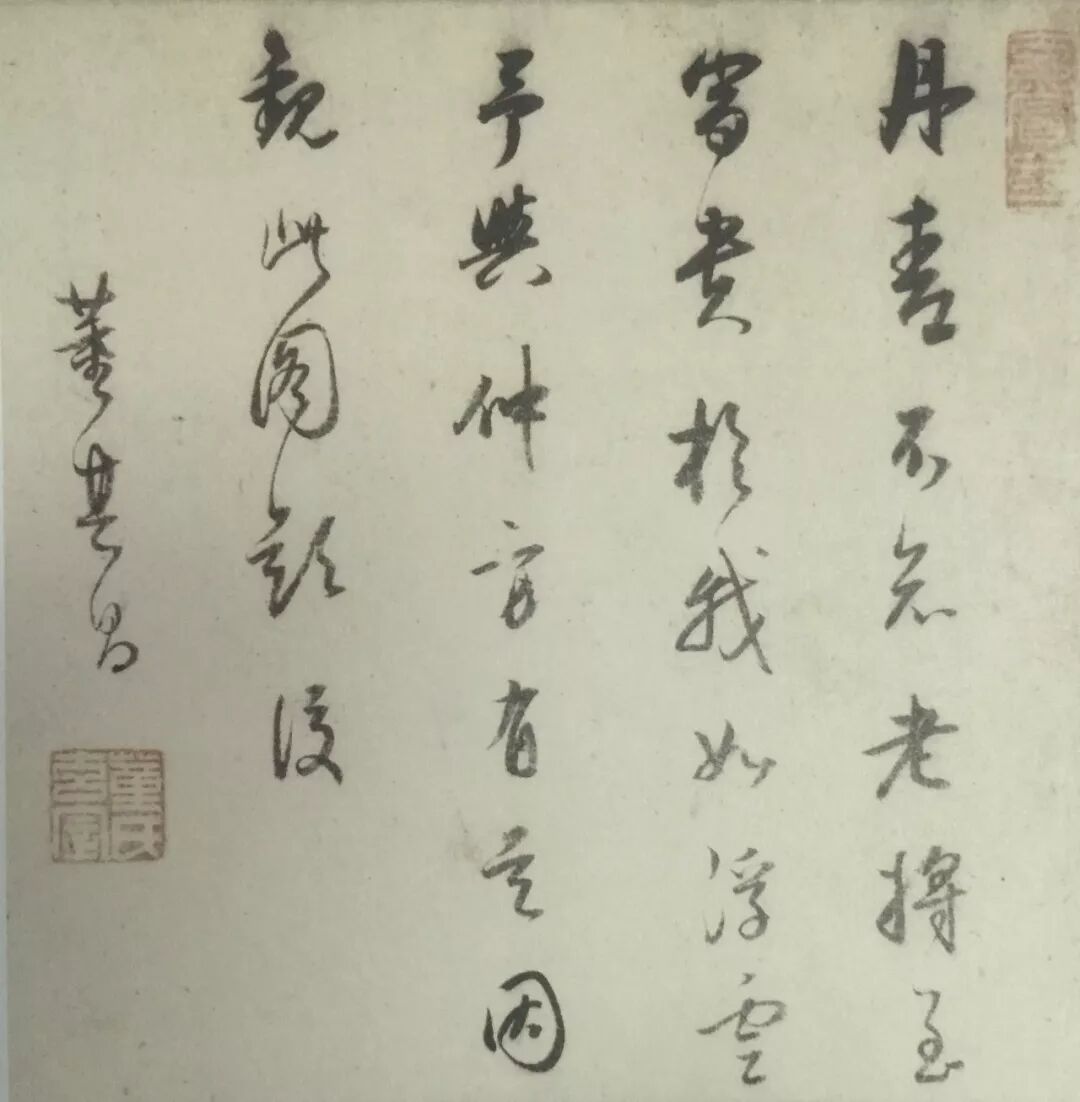 玄賞齋
丹青不知老將至
富貴於我如浮雲
予與仲方有因
觀此圖題後
董其昌
董氏玄宰